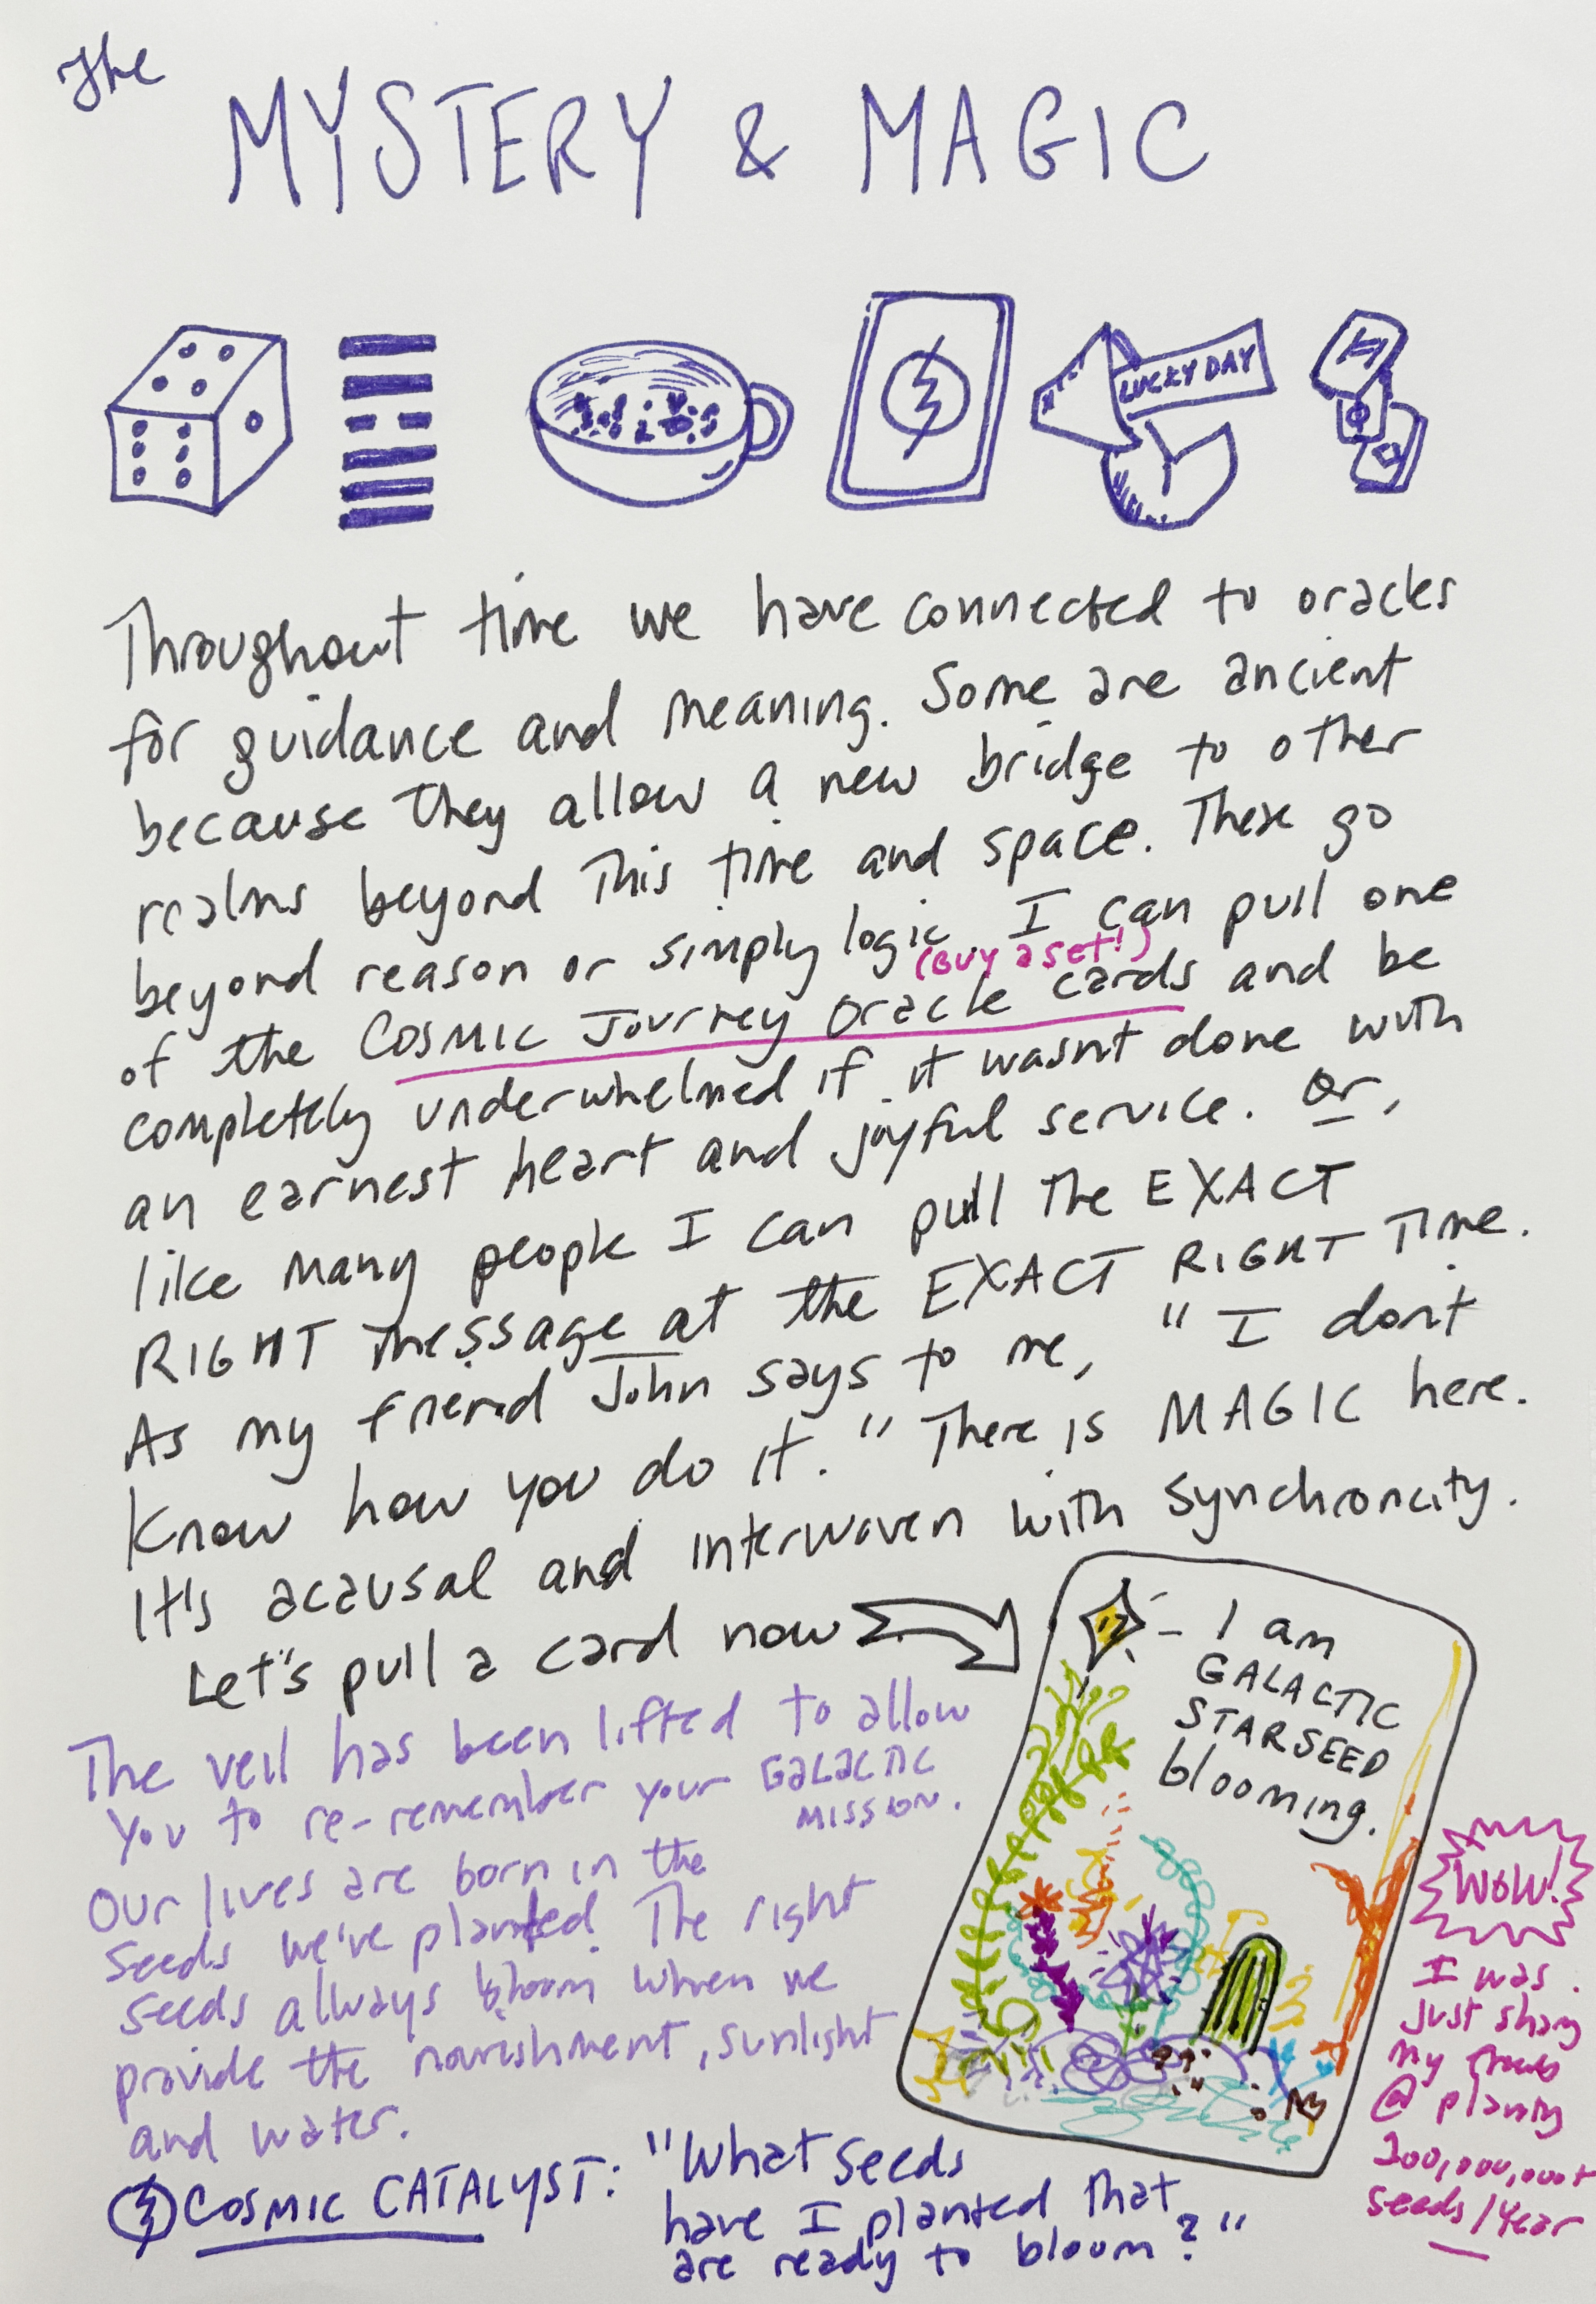 The
MYSTERY & MAGIC
LUCKY DAY
Throughout time we have connected to oracles
for guidance and meaning. Some are ancient
because they allow a new bridge to other
realms beyond this time and space. These go
beyond reason or simply logic I can pull one
(BUY a set!)
of the COSMIC Journey Oracle cards and be
completely underwhelmed if it wasn't done with
an earnest heart and joyful service. Or,
like many people I can pull the EXACT
RIGHT message at the EXACT RIGHT Time.
As my friend John says to me, "I don't
know how you do it." There is MAGIC here.
It's acausal and interwoven with synchroncity.
Let's pull a card now
I am
GALACTIC
STARSEED
blooming.
The veil has been lifted to allow
you to re-remember your GALACTIC
MISSION.
Our lives are born in the
seeds we've planted. The right
seeds allways bloom when we
provide the nourishment, sunlight
and water.
WOW!
I was
just sharing
my
@ planting
200,000,000+
seeds/year
COSMIC CATALYST: "What seeds
have I planted that
are ready to bloom?"